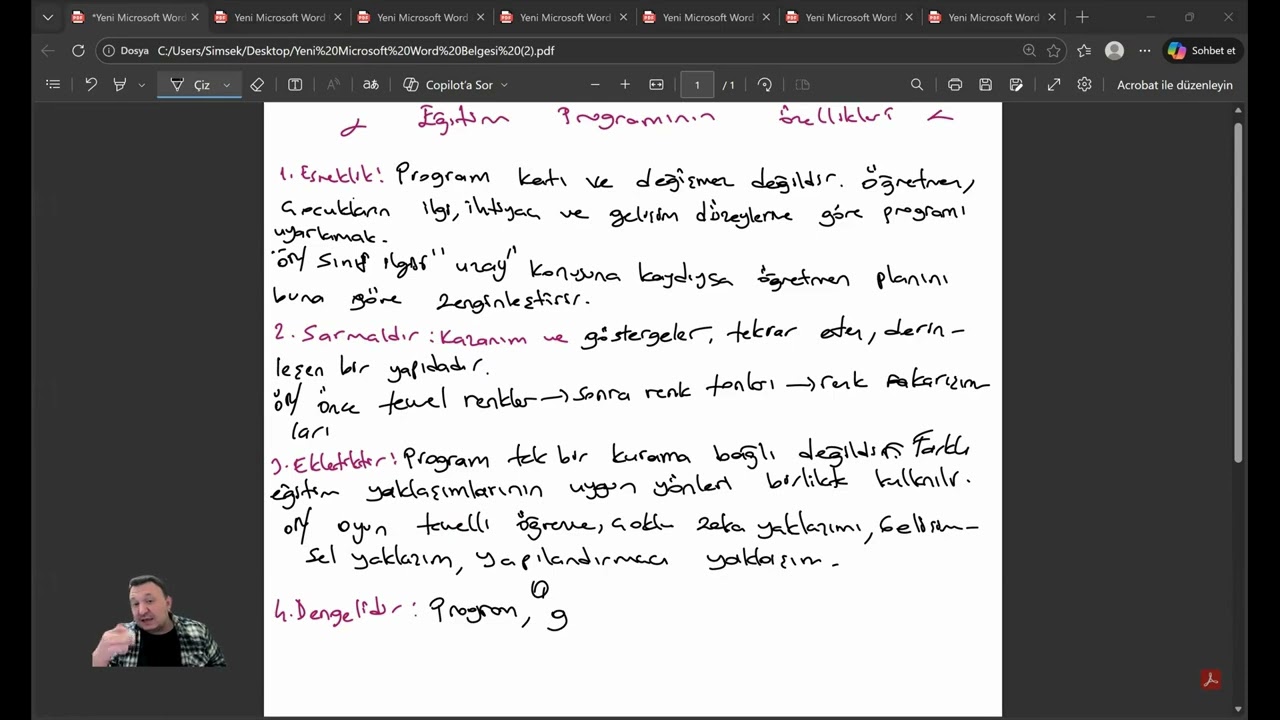 *Yeni Microsoft Word Yeni Microsoft Word Yeni Microsoft Word Yeni Microsoft Word Yeni Microsoft Word Yeni Microsoft Word Yeni Microsoft Word
Dosya C:/Users/Simsek/Desktop/Yeni%20Microsoft%20Word%20Belgesi%20(2).pdf Sohbet et
Çiz Copilot'a Sor 1 /1 Acrobat ile düzenleyin
Eğitim Programının özellikleri
1. Esneklik: Program katı ve değişmez değildir. Öğretmen,
çocukların ilgi, ihtiyaç ve gelişim düzeylerine göre programı
uyarlamak.
ör/ sınıf ilgisi "uzay" konusuna kaydıysa öğretmen planını
buna göre zenginleştirir.
2. Sarmaldır: Kazanım ve göstergeler, tekrar eden, derin-
leşen bir yapıdadır.
ör/ önce temel renkler → sonra renk tonları → renk karışım
ları
3. Eklektiktir: Program tek bir kurama bağlı değildir. Farklı
eğitim yaklaşımlarının uygun yönleri birlikte kullanılır.
ör/ oyun temelli öğrenme, çoklu zeka yaklaşımı, Gelişim-
sel yaklaşım, yapılandırmacı yaklaşım.
4. Dengelidir: Program, g